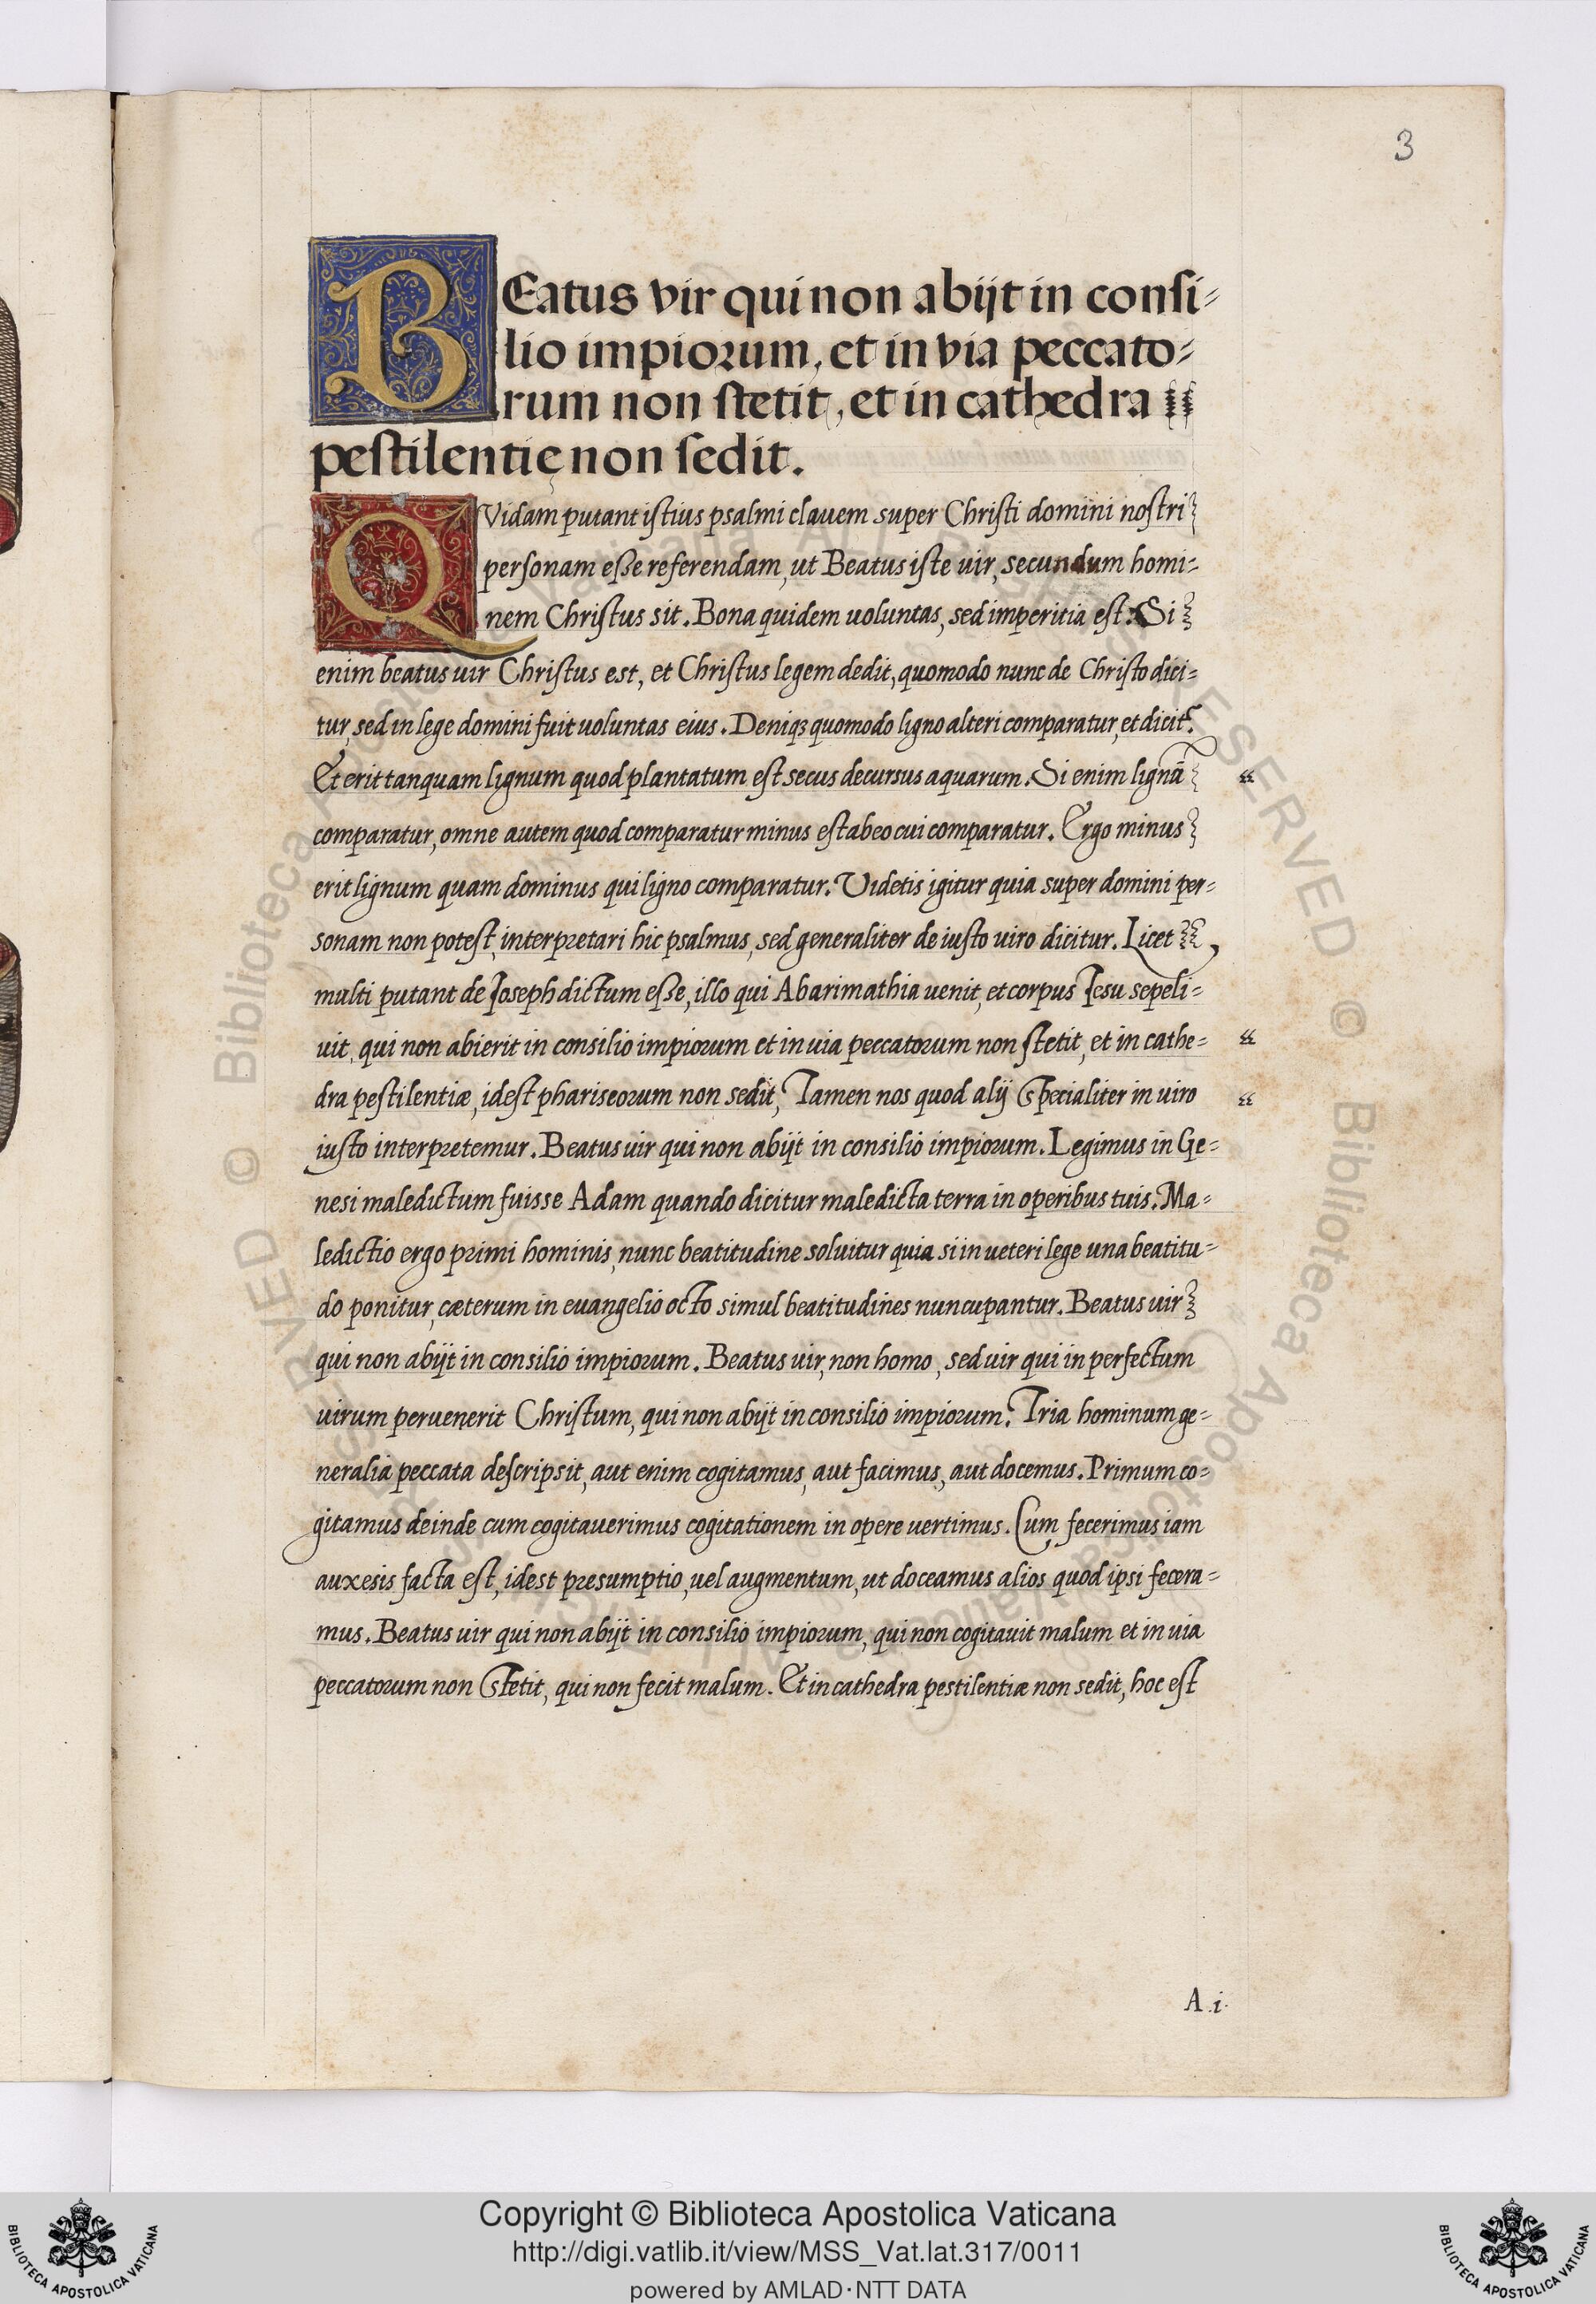 3
BEatus vir qui non abijt in consi-
lio impiorum, et in via peccato-
rum non stetit, et in cathedra
pestilentię non sedit.
QVidam putant istius psalmi clauem super Christi domini nostri
personam esse referendam, ut Beatus iste uir, secundum homi-
nem Christus sit. Bona quidem uoluntas, sed imperitia est. Si
enim beatus uir Christus est, et Christus legem dedit, quomodo nunc de Christo dici-
tur, sed in lege domini fuit uoluntas eius. Deniqꝫ quomodo ligno alteri comparatur, et dicit?
Et erit tanquam lignum quod plantatum est secus decursus aquarum. Si enim lignā
comparatur, omne autem quod comparatur minus est ab eo cui comparatur. Ergo minus
erit lignum quam dominus qui ligno comparatur. Videtis igitur quia super domini per-
sonam non potest, interpretari hic psalmus, sed generaliter de iusto uiro dicitur. Licet
multi putant de Ioseph dictum esse, illo qui Abarimathia uenit, et corpus Iesu sepeli-
uit, qui non abierit in consilio impiorum et in uia peccatorum non stetit, et in cathe-
dra pestilentiæ, idest phariseorum non sedit, Tamen nos quod alij Specialiter in uiro
iusto interpretemur. Beatus uir qui non abijt in consilio impiorum. Legimus in Ge-
nesi maledictum fuisse Adam quando dicitur maledicta terra in operibus tuis. Ma-
ledictio ergo primi hominis, nunc beatitudine soluitur quia si in ueteri lege una beatitu-
do ponitur, cæterum in euangelio octo simul beatitudines nuncupantur. Beatus uir
qui non abijt in consilio impiorum. Beatus uir, non homo, sed uir qui in perfectum
uirum peruenerit Christum, qui non abijt in consilio impiorum. Tria hominum ge-
neralia peccata descripsit, aut enim cogitamus, aut facimus, aut docemus. Primum co-
gitamus deinde cum cogitauerimus cogitationem in opere uertimus. Cum fecerimus iam
auxesis facta est, idest presumptio, uel augmentum, ut doceamus alios quod ipsi fecera-
mus. Beatus uir qui non abijt in consilio impiorum, qui non cogitauit malum et in uia
peccatorum non Stetit, qui non fecit malum. Et in cathedra pestilentiæ non sedit, hoc est
A.i.
Copyright © Biblioteca Apostolica Vaticana
http://digi.vatlib.it/view/MSS_Vat.lat.317/0011
powered by AMLAD·NTT DATA
BIBLIOTECA APOSTOLICA VATICANA
BIBLIOTECA APOSTOLICA VATICANA